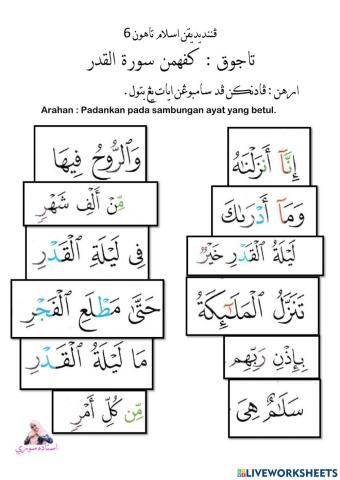 ڤنديديقن اسلام تاهون 6
تاجوق : كفهمن سورة القدر
ارهن : ڤادنكن ڤد سامبوڠن ايات يڠ بتول.
Arahan : Padankan pada sambungan ayat yang betul.
إِنَّآ أَنزَلْنَٰهُ
وَٱلرُّوحُ فِيهَا
وَمَآ أَدْرَىٰكَ
مِّنْ أَلْفِ شَهْرٍ
لَيْلَةُ ٱلْقَدْرِ خَيْرٌ
فِى لَيْلَةِ ٱلْقَدْرِ
تَنَزَّلُ ٱلْمَلَٰٓئِكَةُ
حَتَّىٰ مَطْلَعِ ٱلْفَجْرِ
بِإِذْنِ رَبِّهِم
مَا لَيْلَةُ ٱلْقَدْرِ
سَلَٰمٌ هِىَ
مِّن كُلِّ أَمْرٍ
استاذه سوري
LIVEWORKSHEETS